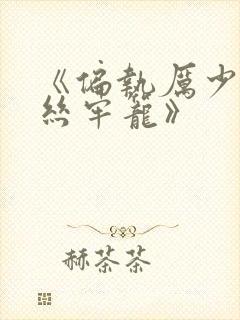 《偏執厲少
絲牢籠》
赫茶茶